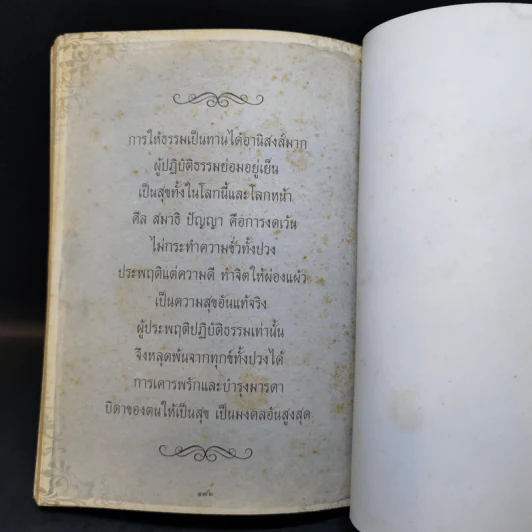 การให้ธรรมเป็นทานได้อานิสงส์มาก
ผู้ปฏิบัติธรรมย่อมอยู่เย็น
เป็นสุขทั้งในโลกนี้และโลกหน้า
ศีล สมาธิ ปัญญา คือการงดเว้น
ไม่กระทำความชั่วทั้งปวง
ประพฤติแต่ความดี ทำจิตให้ผ่องแผ้ว
เป็นความสุขอันแท้จริง
ผู้ประพฤติปฏิบัติธรรมเท่านั้น
จึงหลุดพ้นจากทุกข์ทั้งปวงได้
การเคารพรักและบำรุงมารดา
บิดาของตนให้เป็นสุข เป็นมงคลอันสูงสุด